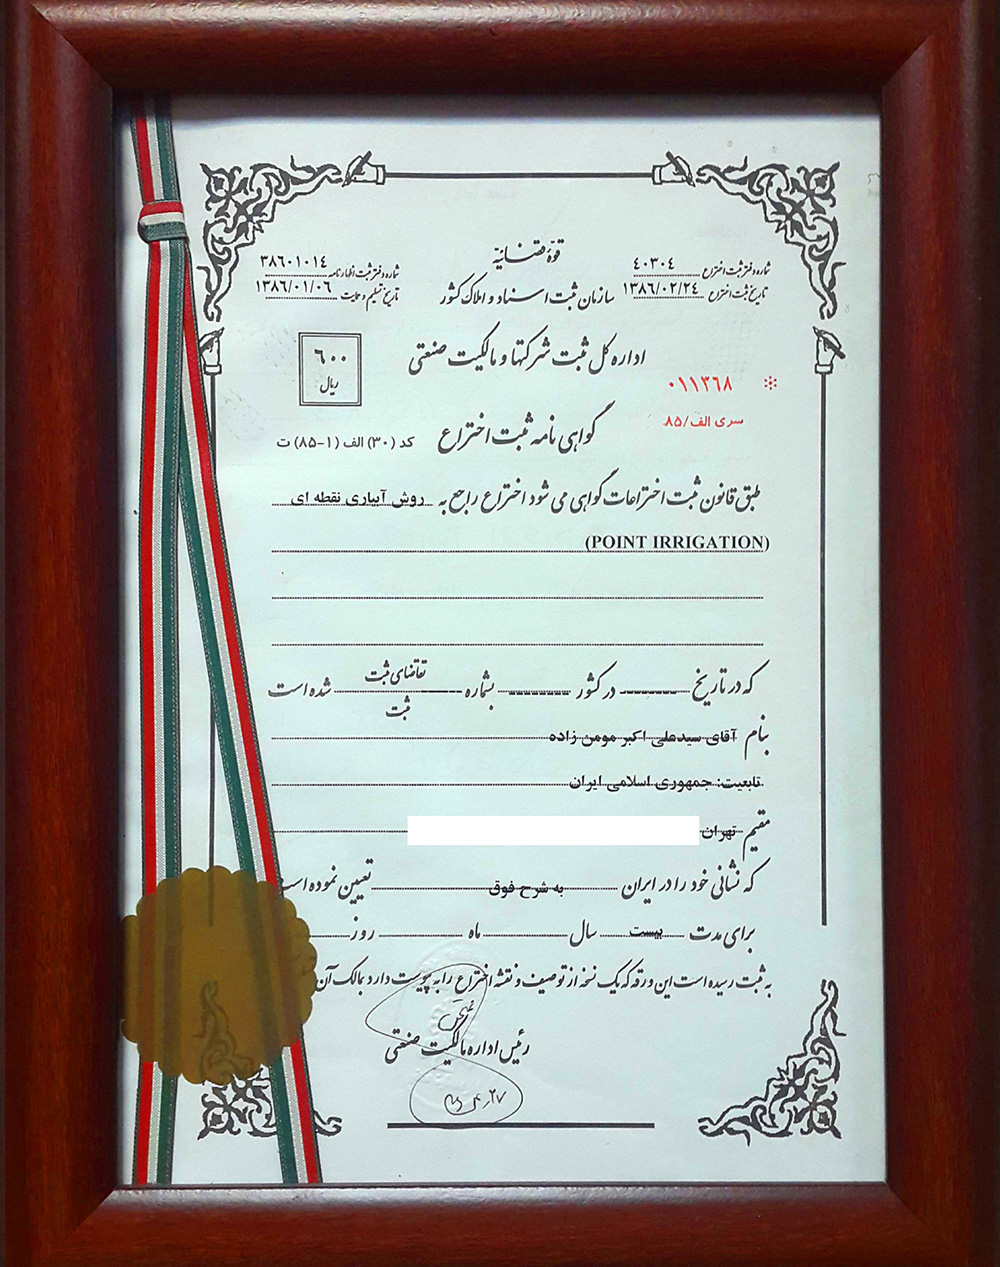 قوّهٔ قضائیّه
سازمان ثبت اسناد و املاک کشور
شماره دفتر ثبت اختراع ۴۰۳۰۴
تاریخ ثبت اختراع ۱۳۸۶/۰۲/۲۴
شماره دفتر ثبت اظهارنامه ۳۸۶۰۱۰۱۴
تاریخ تسلیم و حمایت ۱۳۸۶/۰۱/۰۶
اداره کل ثبت شرکتها و مالکیت صنعتی
۶۰۰
ریال
۰۱۱۳۶۸
سری الف/۸۵
گواهی نامه ثبت اختراع
کد (۳۰) الف (۱-۸۵) ت
طبق قانون ثبت اختراعات گواهی می شود اختراع راجع به روش آبیاری نقطه ای
(POINT IRRIGATION)
که در تاریخ در کشور بشماره تقاضای ثبت / ثبت شده است
بنام آقای سیدعلی اکبر مومن زاده
تابعیت: جمهوری اسلامی ایران
مقیم تهران
که نشانی خود را در ایران به شرح فوق تعیین نموده است
برای مدت بیست سال ماه روز
به ثبت رسیده است این ورقه که یک نسخه از توصیف و نقشه اختراع را به پیوست دارد بمالک آن
رئیس اداره مالکیت صنعتی